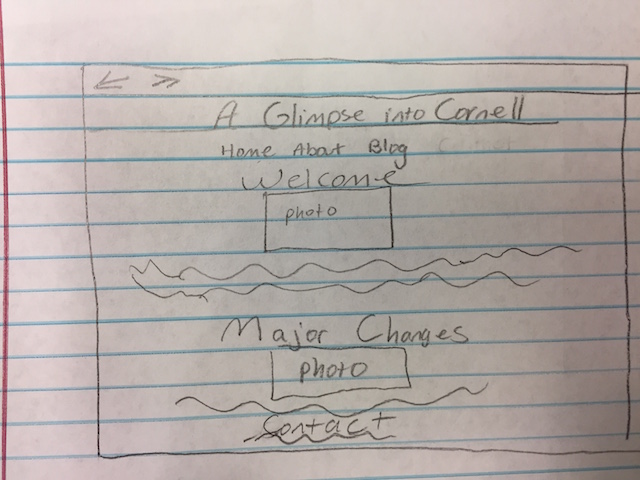 A Glimpse into Cornell
Home About Blog
Welcome
photo
Major Changes
photo
Contact